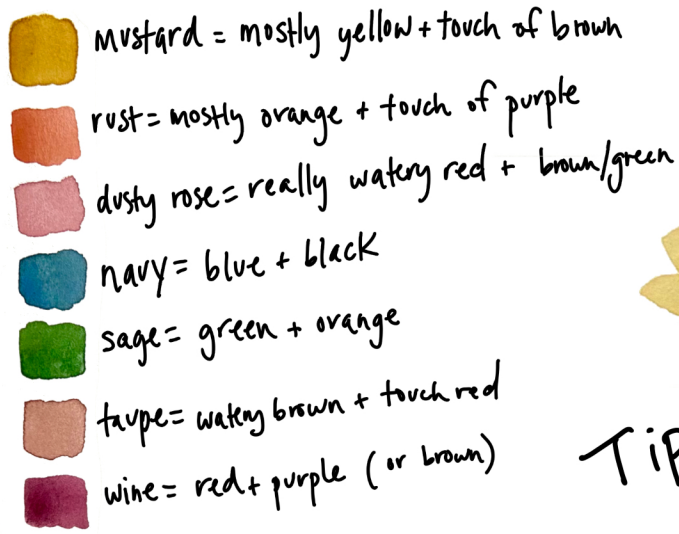 mustard = mostly yellow + touch of brown
rust = mostly orange + touch of purple
dusty rose = really watery red + brown/green
navy = blue + black
sage = green + orange
taupe = watery brown + touch red
wine = red + purple (or brown)
Tip